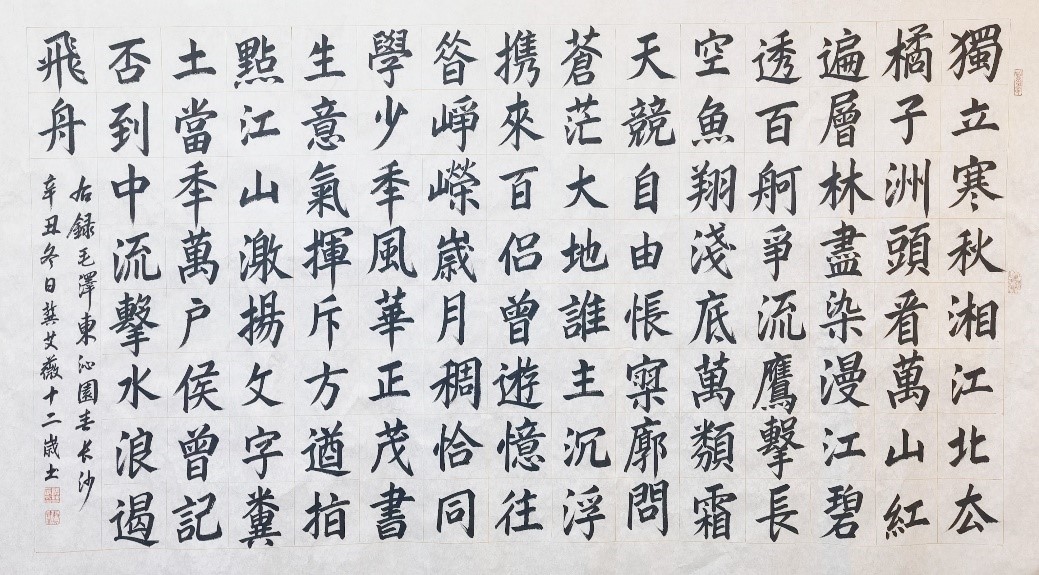 獨立寒秋湘江北厺
橘子洲頭看萬山紅
遍層林盡染漫江碧
透百舸爭流鷹擊長
空魚翔淺底萬類霜
天競自由悵寥廓問
蒼茫大地誰主沉浮
携來百侶曾遊憶往
昝崢嶸歲月稠恰同
學少秊風華正茂書
生意氣揮斥方遒指
點江山激揚文字糞
土當秊萬户侯曾記
否到中流擊水浪遏
飛舟
右録毛澤東沁園春長沙
辛丑冬日艾薇十二歲書